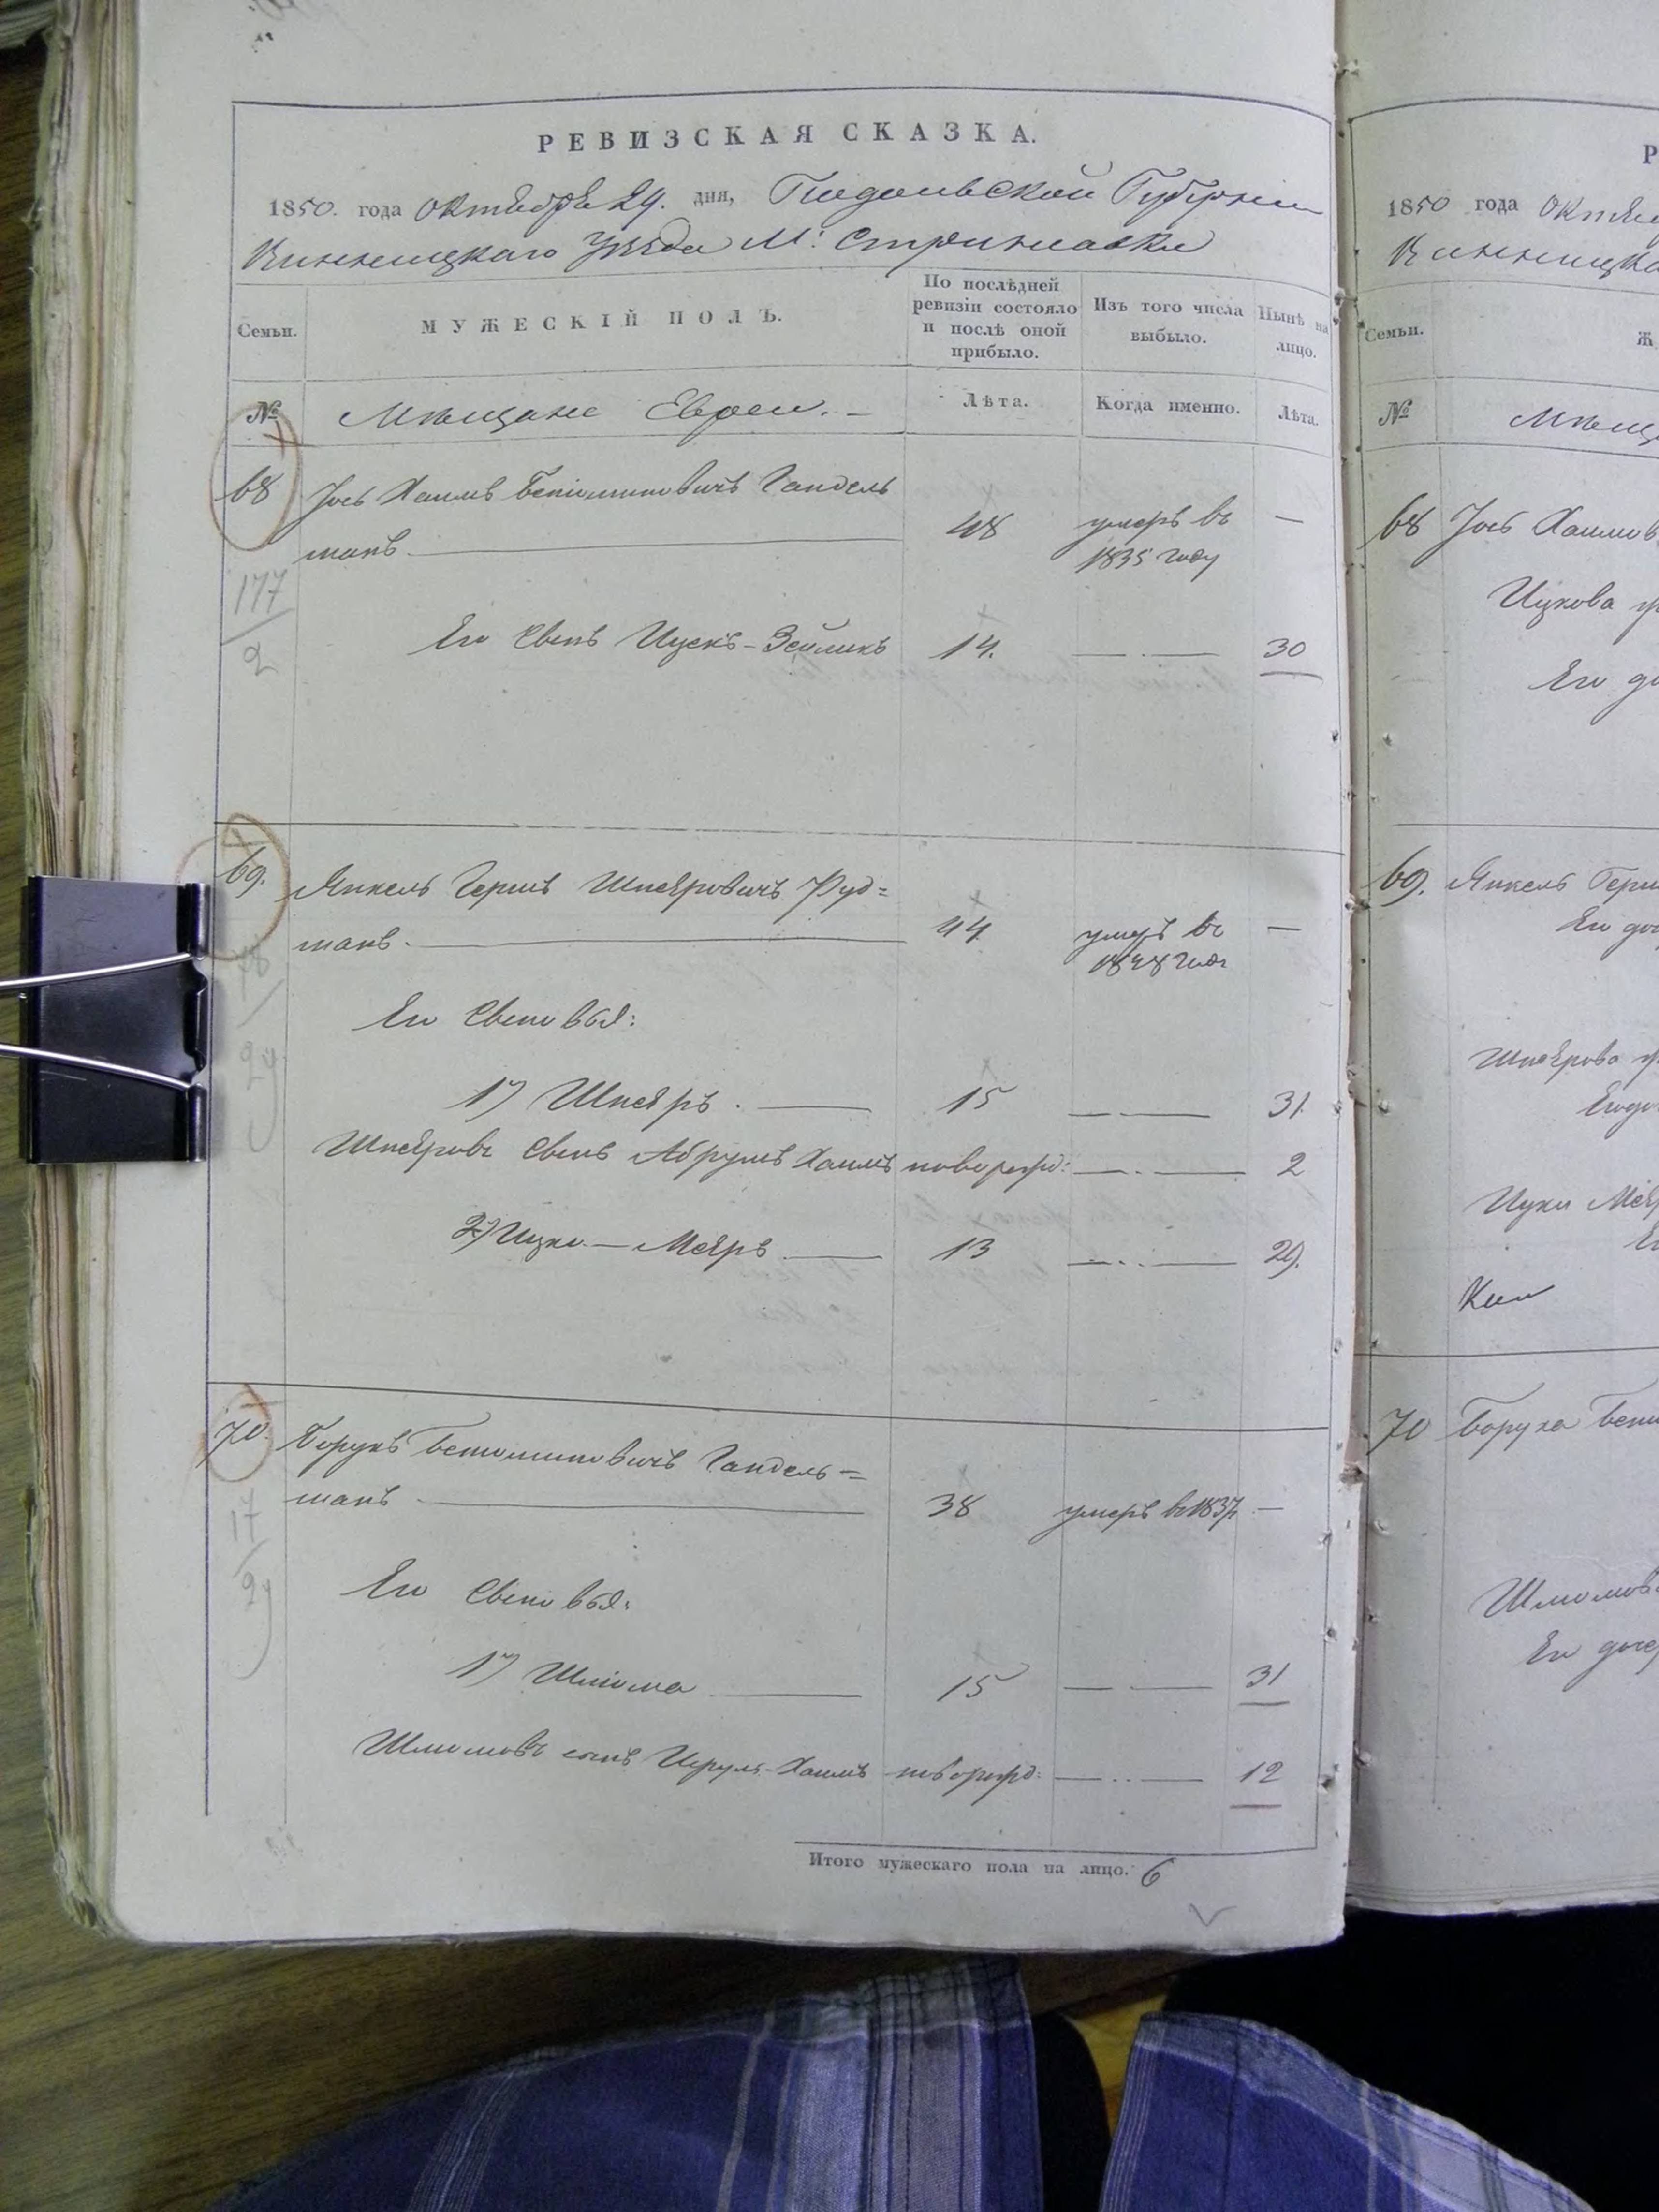 РЕВИЗСКАЯ СКАЗКА.
1850. года Октября 29. дня, Подольской Губерніи
Винницкаго Уѣзда М: Стрижавки
Семьи. МУЖЕСКІЙ ПОЛЪ. По послѣдней ревизіи состояло и послѣ оной прибыло. Изъ того числа выбыло. Нынѣ на лицо.
№ Мѣщане Евреи. — Лѣта. Когда именно. Лѣта.
68 Іось Хаимъ Беніоминовичъ Гандель
манъ. 48 умеръ въ 1835 году —
177
2
Его Сынъ Ицекъ-Зейликъ 14. — 30
69. Янкель Гершъ Шнеяровичъ Фуд=
манъ. 44 умеръ въ 1848 году —
Его Сыновья:
1) Шнеяръ. — 15 — 31
Шнеяровъ Сынъ Абрумъ Хаимъ новорожд: — 2
2) Ицко — Меяръ — 13 — 29.
70. Борухъ Беніоминовичъ Гандель=
манъ 38 умеръ въ 1837 —
17
Его Сыновья:
1) Шліома 15 — 31
Шліомовъ сынъ Исруль-Хаимъ новорожд: — 12
Итого мужескаго пола на лицо. 6
1850 года
№
68 Іось
Ицкова
Его
69. Янкель
Его
Шнеярова
Ицки
70 Боруха
Его